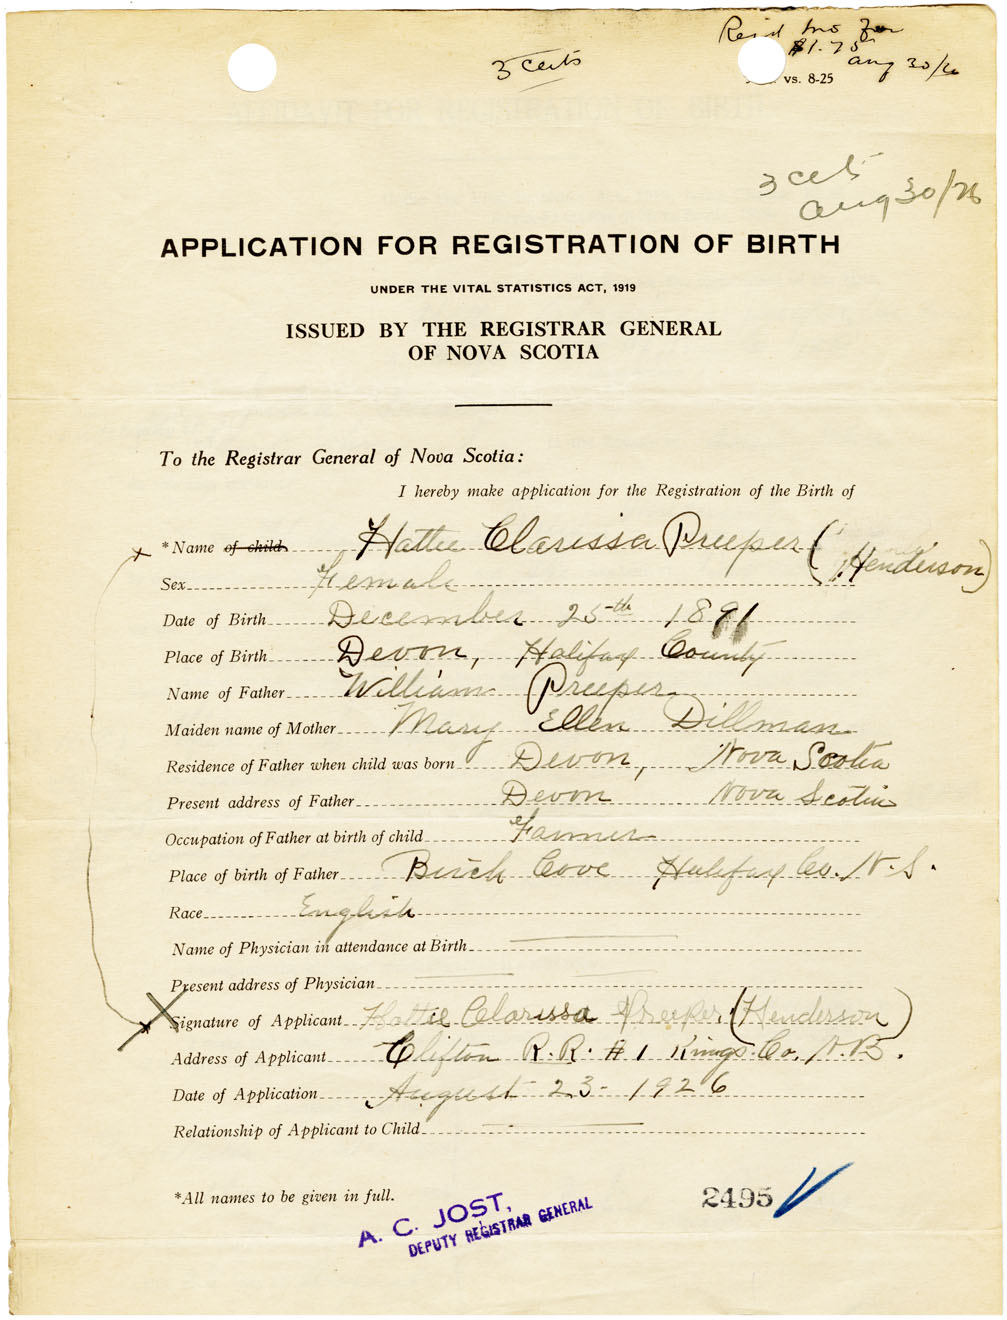 3 certs
$1.75
Aug 30/26
vs. 8-25
3 certs
Aug 30/26
APPLICATION FOR REGISTRATION OF BIRTH
UNDER THE VITAL STATISTICS ACT, 1919
ISSUED BY THE REGISTRAR GENERAL
OF NOVA SCOTIA
To the Registrar General of Nova Scotia:
I hereby make application for the Registration of the Birth of
*Name of child Hattie Clarissa Preeper (Henderson)
Sex Female
Date of Birth December 25th 1891
Place of Birth Devon, Halifax County
Name of Father William Preeper
Maiden name of Mother Mary Ellen Dillman
Residence of Father when child was born Devon, Nova Scotia
Present address of Father Devon Nova Scotia
Occupation of Father at birth of child Farmer
Place of birth of Father Birch Cove Halifax Co. N.S.
Race English
Name of Physician in attendance at Birth
Present address of Physician
Signature of Applicant Hattie Clarissa Preeper (Henderson)
Address of Applicant Clifton R.R. #1 Kings Co. N.B.
Date of Application August 23 - 1926
Relationship of Applicant to Child
*All names to be given in full.
2495
A. C. JOST,
DEPUTY REGISTRAR GENERAL